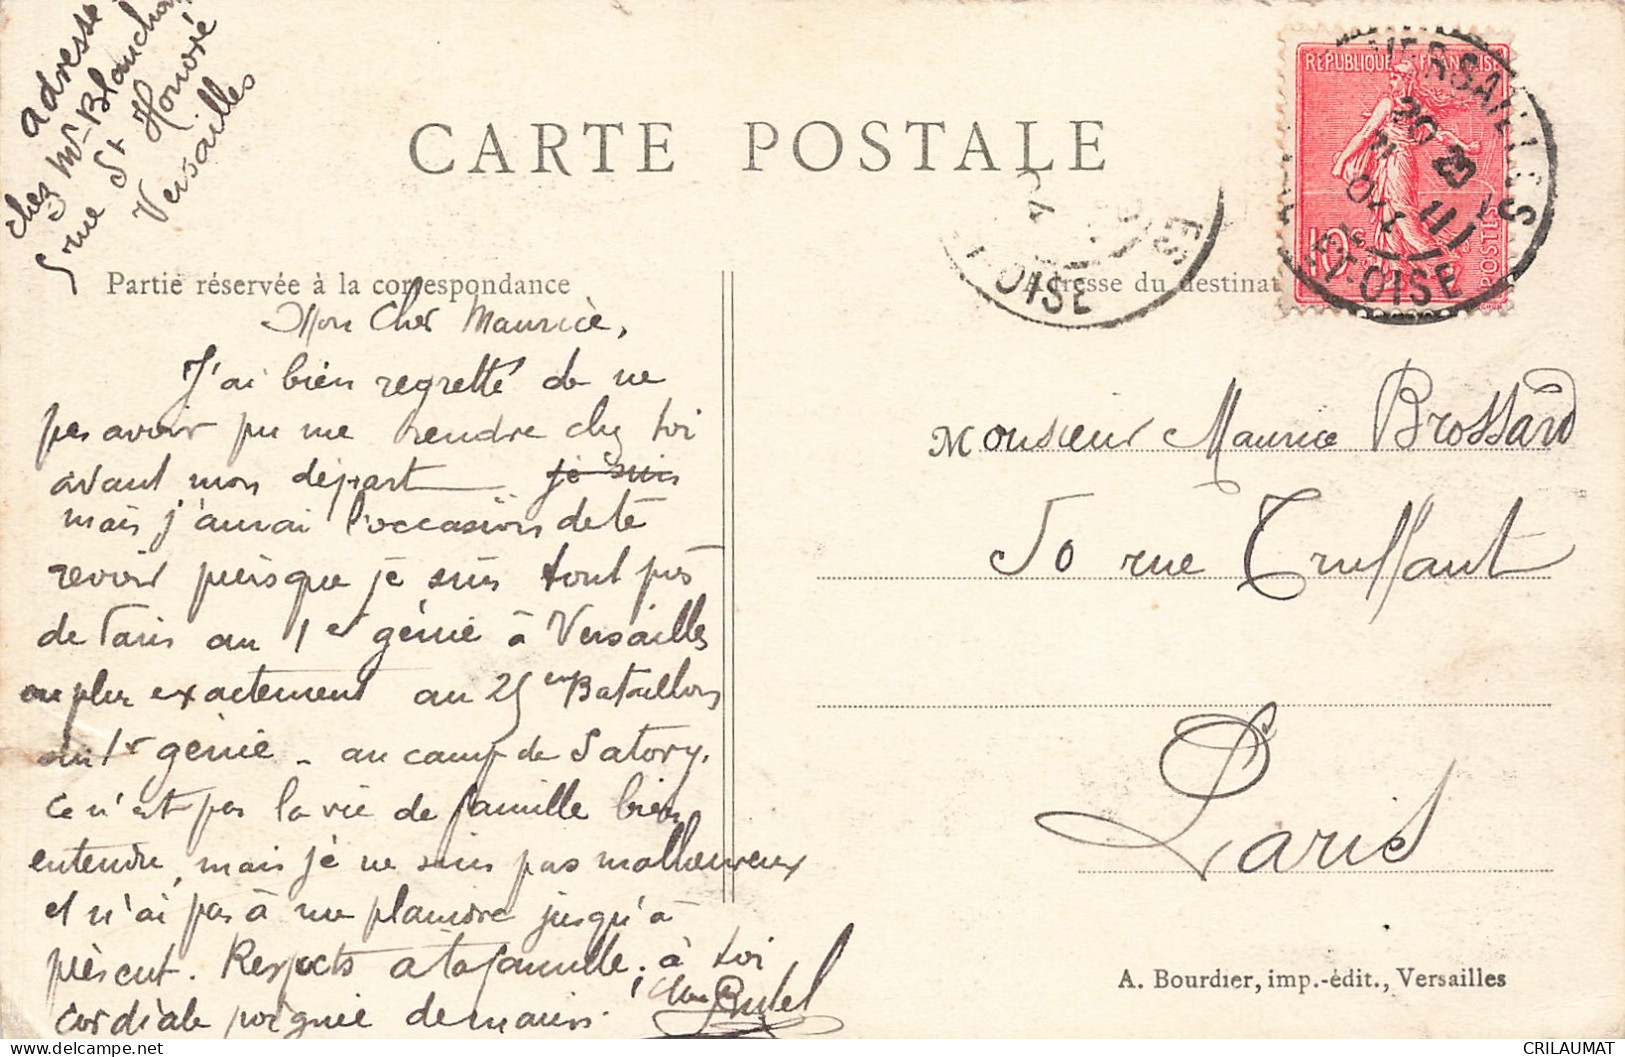 adresse
chez Mr Blanchon
5 rue St Honoré
Versailles
CARTE POSTALE
REPUBLIQUE FRANÇAISE
10c
POSTES
VERSAILLES
20 11
Sᵗ-OISE
OISE
Partie réservée à la correspondance
Adresse du destinat
Mon Cher Maurice,
J'ai bien regretté de ne
pas avoir pu me rendre chez toi
avant mon départ je suis
mais j'aurai l'occasion de te
revoir puisque je suis tout près
de Paris au 1er génie à Versailles
ou plus exactement au 25em Bataillon
du 1er génie - au camp de Satory.
Ce n'est pas la vie de famille bien
entendu, mais je ne suis pas malheureux
et n'ai pas à me plaindre jusqu'à
présent. Respects à ta famille. à toi
cordiale poignée de mains.
Monsieur Maurice Brossard
50 rue Truffaut
Paris
A. Bourdier, imp.-édit., Versailles
CRILAUMAT